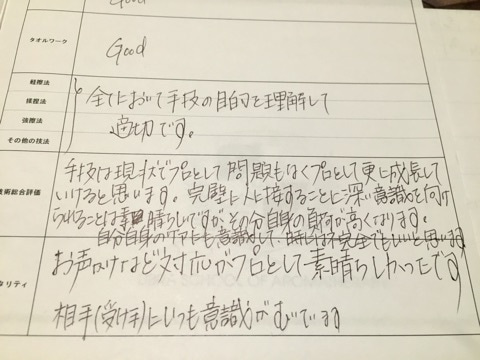 Good
タオルワーク
Good
軽擦法
強擦法
その他の技法
全てにおいて手技の目的を理解して
適切です。
技術総合評価
手技は現状でプロとして問題もなくプロとして更に成長して
いけると思います。完璧に人に接することに深い意識を向け
られることは素晴らしいですが、その分自身の が高くなります。
自分自身のケアにも意識して、時には不完全でもいいと思います
タリティ
お声がけなど対応がプロとして素晴らしかったです
相手(受け手)にいつも意識がむいてます